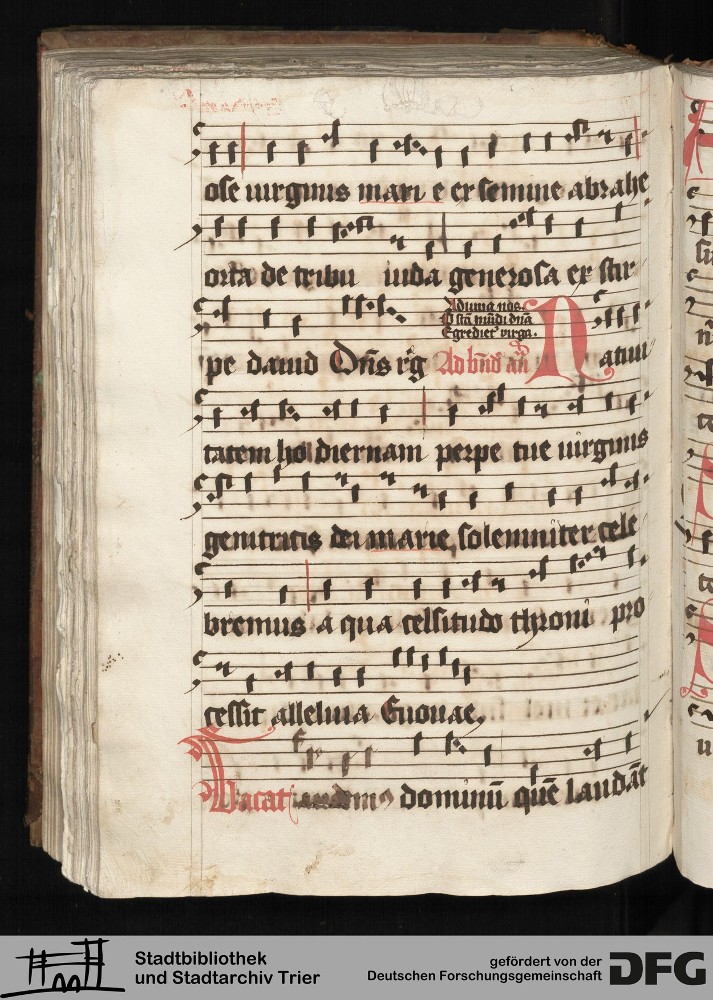 ose uirginis mari e ex semine abrahe
orta de tribu iuda generosa ex stir
pe dauid Oñs rg Ad bñd añ Natiui
Adiuua nos.
Egrediet virga.
tatem ho diernam perpe tue uirginis
genitricis dei marie solemniter cele
bremus a qua celsitudo throni pro
cessit alleluia Euouae,
Vacat dominū quē laudāt
Stadtbibliothek
und Stadtarchiv Trier
gefördert von der
Deutschen Forschungsgemeinschaft
DFG